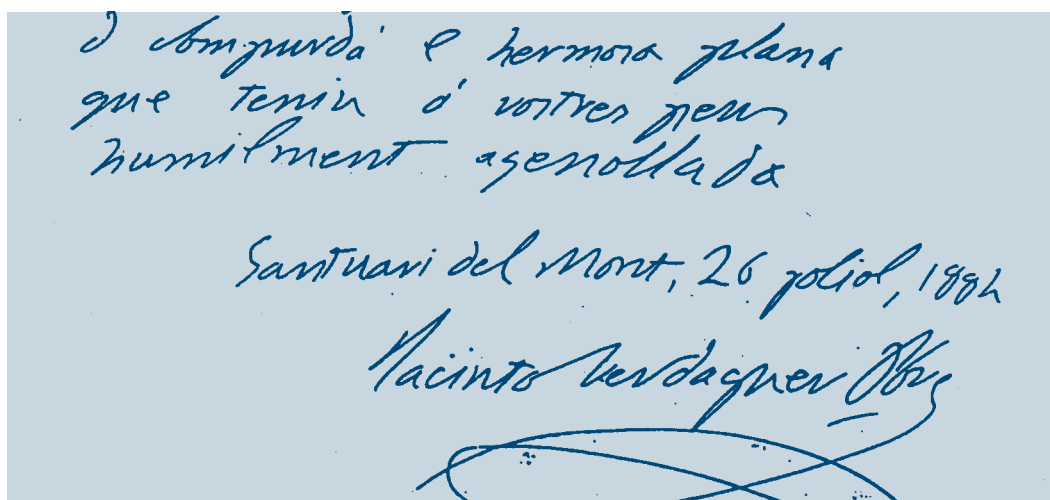 d'Ampurdá e hermosa plana
que teniu á vostres peus
humilment agenollada
Santuari del Mont, 26 joliol, 1884
Jacinto Verdaguer Pbre